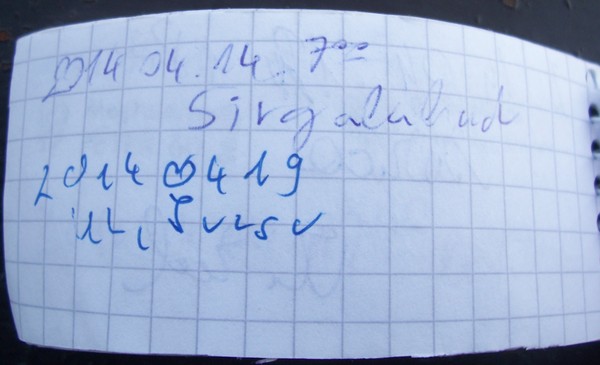 2014 04.14. 7⁰⁰
Sirgalabad
2014 04 19